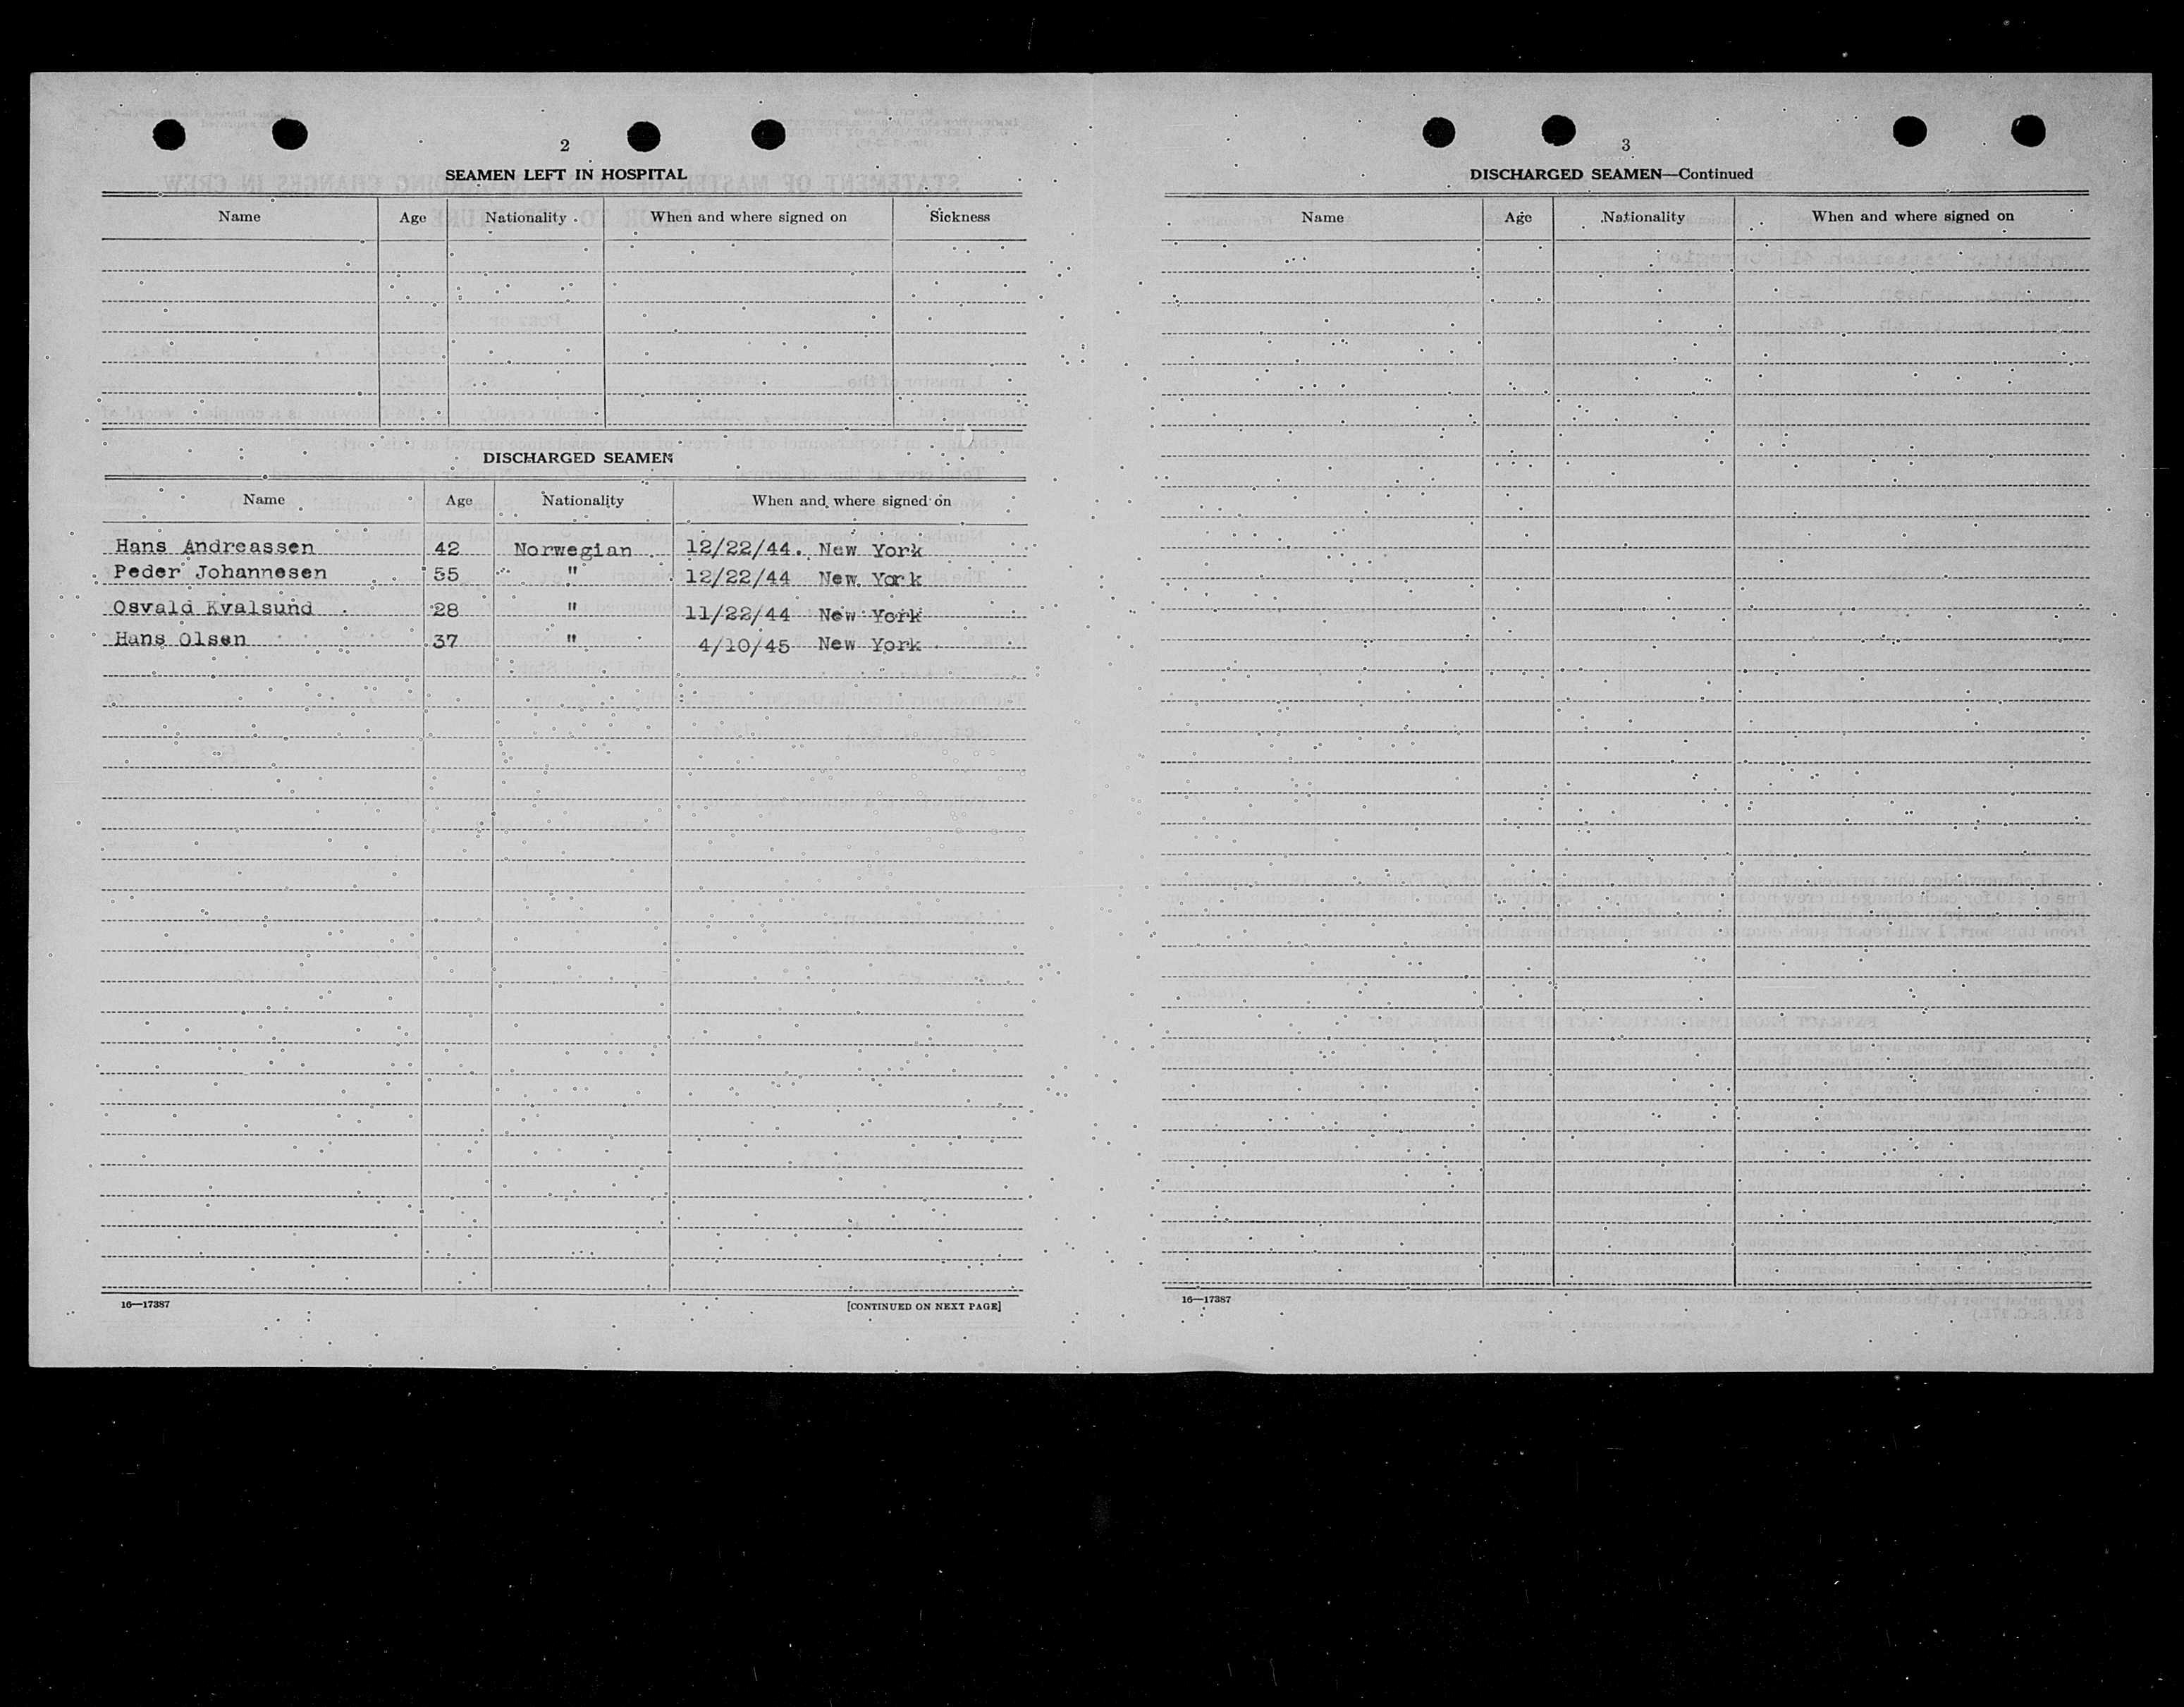 2
SEAMEN LEFT IN HOSPITAL
Name Age Nationality When and where signed on Sickness
DISCHARGED SEAMEN
Name Age Nationality When and where signed on
Hans Andreassen 42 Norwegian 12/22/44. New York
Peder Johannesen 55 " 12/22/44 New York
Osvald Kvalsund 28 " 11/22/44 New York
Hans Olsen 37 " 4/10/45 New York
16—17387 [CONTINUED ON NEXT PAGE]
3
DISCHARGED SEAMEN—Continued
Name Age Nationality When and where signed on
16—17387